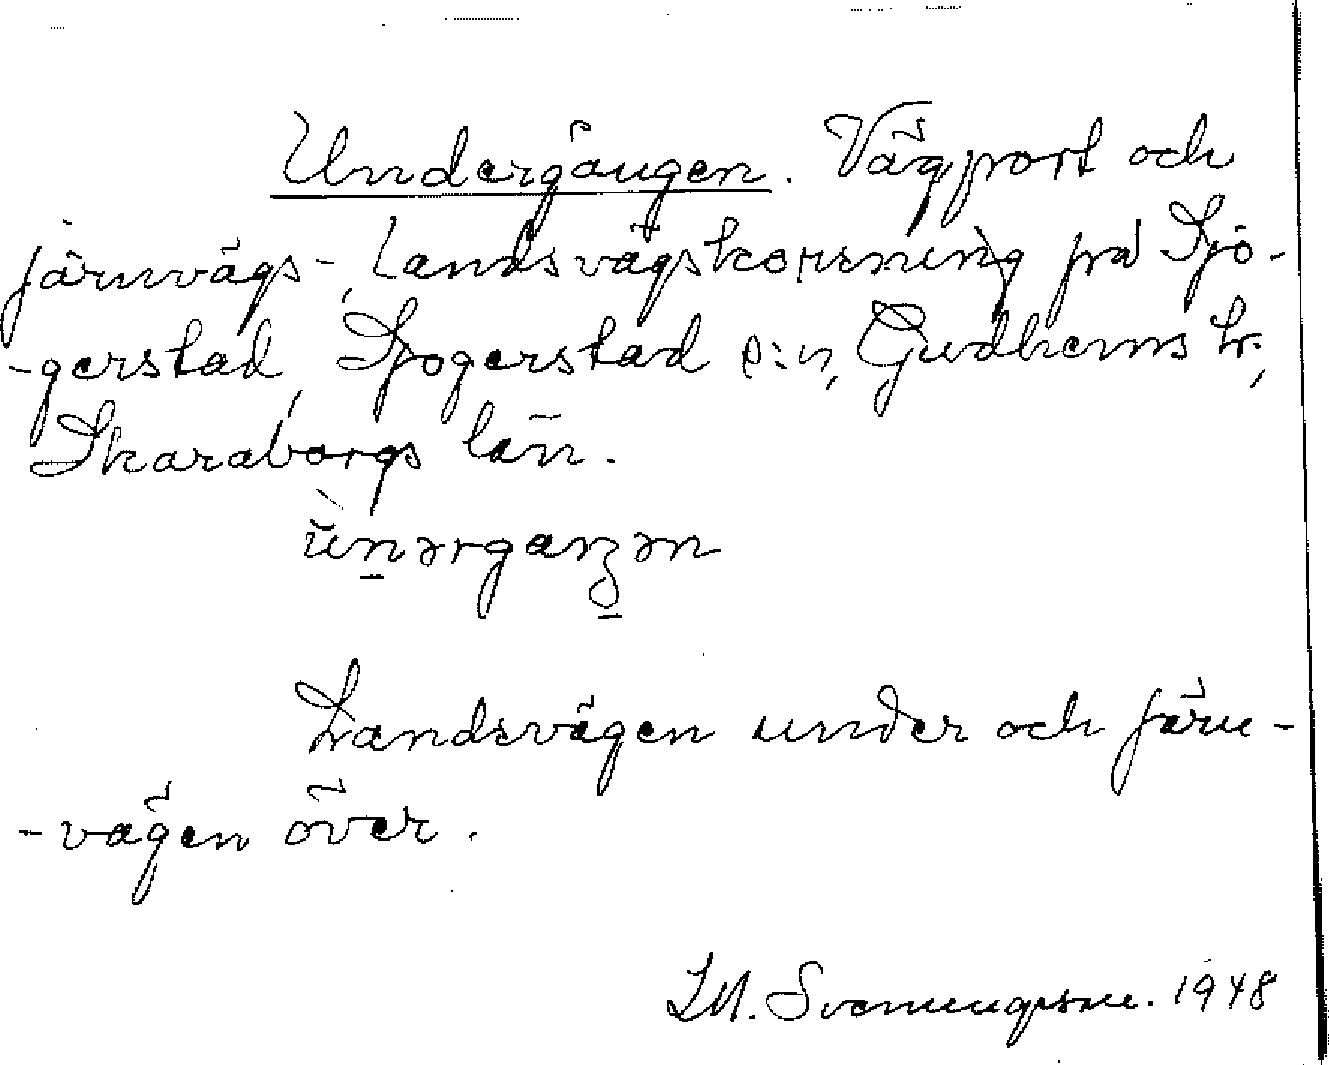 Undergången. Vägport och
järnvägs-, landsvägskorsning på Sjö-
-gerstad, Sjogerstad s:n, Gudhems hd,
Skaraborgs län.
ùnərgaŋən
Landsvägen under och järn-
-vägen över.
Svenungsson. 1948